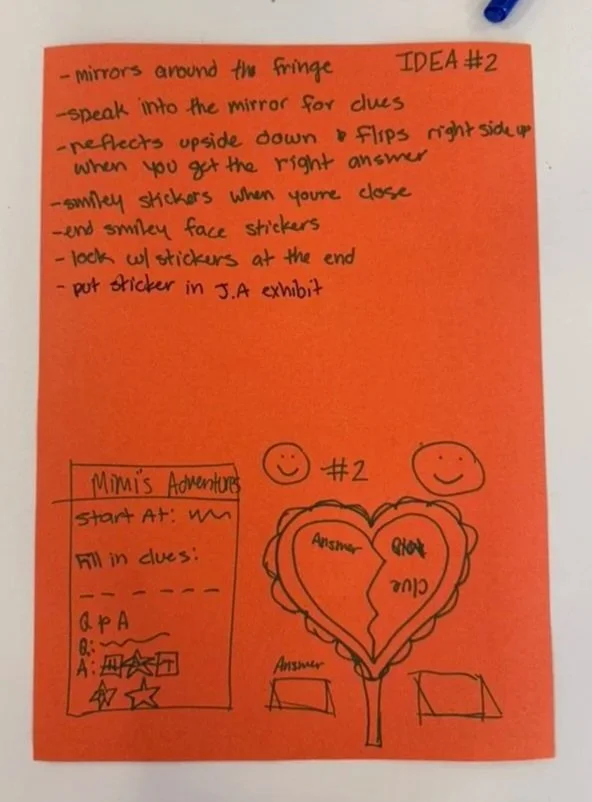 IDEA #2
- mirrors around the fringe
- speak into the mirror for clues
- reflects upside down & flips right side up
when you get the right answer
- smiley stickers when youre close
- end smiley face stickers
- lock w/ stickers at the end
- put sticker in J.A exhibit
Mimi's Adventures
Start At:
Fill in clues:
Q & A
Q:
A:
#2
Answer
clue
Answer